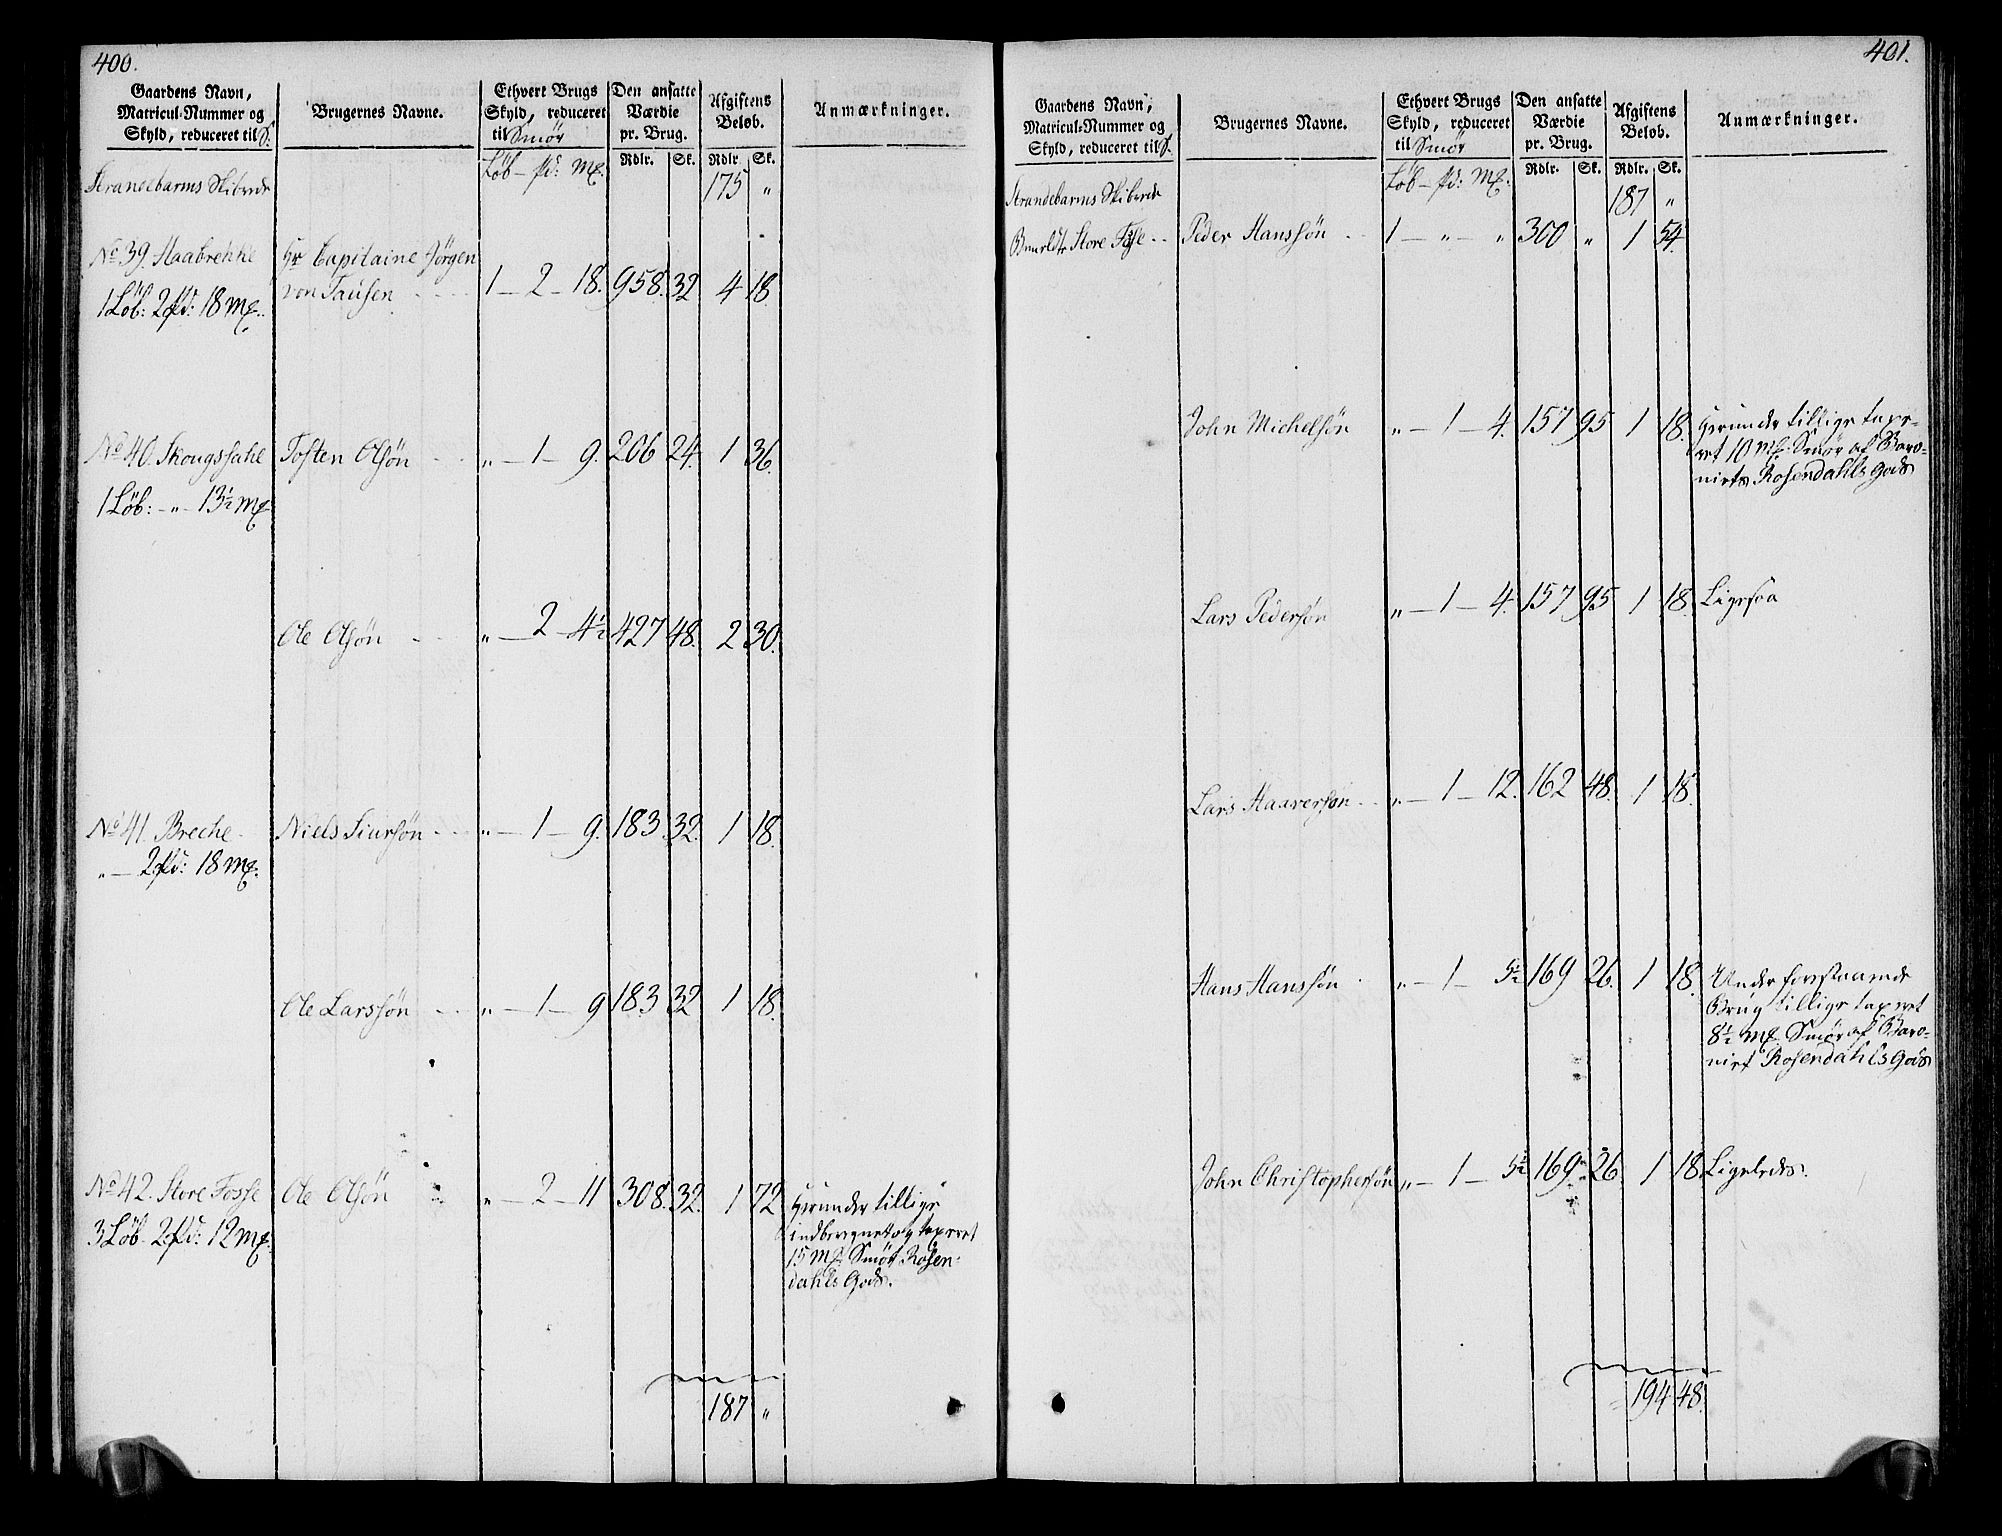 400.
Gaardens Navn,
Matricul-Nummer og
Skyld, reduceret til S.
Brugernes Navne.
Ethvert Brugs
Skyld, reduceret
til Smør
Løb - pd: Mk.
Den ansatte
Værdie
pr. Brug.
Rdlr. Sk.
Afgiftens
Beløb.
Rdlr Sk.
Anmærkninger.
Strandebarms Skibrede 175 "
No 39. Haabrekke Hr Capitaine Jørgen
1 Løb: 2 pd: 18 Mk. von Tausen 1 - 2 - 18. 958. 32 4 18.
No 40. Skougsdahl Tosten Olsøn " - 1 - 9. 206 24. 1 36.
1 Løb: - " - 13½ Mk
Ole Olsøn " - 2 - 4½ 427 48. 2 30.
No 41. Breche Niels Siursøn " - 1 - 9. 183. 32. 1 18.
" - 2 pd: 18 Mk.
Ole Larssøn " - 1 - 9 183 32 1 18.
No 42. Store Fosse Ole Olsøn " - 2 - 11 308. 32. 1 72
3 Løb. 2 pd: 12 Mk.
Herunder tillige
indberegnet og taxeret
15 Mk Smør Rosen-
dahls Gods.
187 "
401.
Gaardens Navn,
Matricul-Nummer og
Skyld, reduceret til S.
Brugernes Navne.
Ethvert Brugs
Skyld, reduceret
til Smør
Løb - pd: Mk.
Den ansatte
Værdie
pr. Brug.
Rdlr. Sk.
Afgiftens
Beløb.
Rdlr. Sk.
Anmærkninger.
Strandebarms Skibrede 187 "
Store Fosse Peder Hanssøn 1 - " - " 300 " 1 54.
John Michelsøn " - 1 - 4. 157 95 1 18.
Herunder tillige taxe-
ret 10 Mk Smør af Baro-
niets Rosendahls Gods
Lars Pedersøn " - 1 - 4. 157 95 1 18. Ligesaa
Lars Haaversøn " - 1 - 12. 162 48. 1 18.
Hans Hanssøn " - 1 - 5½ 169 26. 1 18.
Under forestaaende
Brug tillige taxeret
8½ Mk Smør af Baro-
niet Rosendahls Gods
John Christophersøn " - 1 - 5½ 169. 26 1 18 Ligeledes.
194 48.